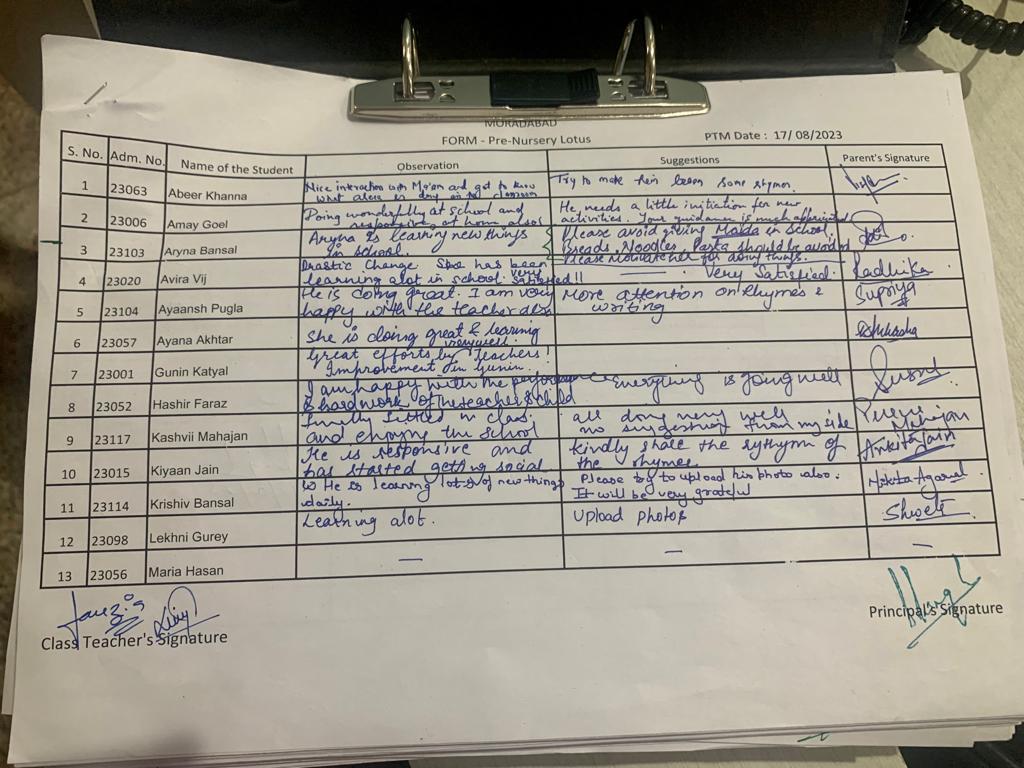 MORADABAD
FORM - Pre-Nursery Lotus PTM Date : 17/08/2023
S. No. Adm. No. Name of the Student Observation Suggestions Parent's Signature
1 23063 Abeer Khanna Nice interaction with Ma'am and got to know Try to make him learn some rhymes.
what alex is doing in the classroom
2 23006 Amay Goel Doing wonderfully at school and He needs a little initiation for new
responding at home also. activities. Your guidance is much appreciated
3 23103 Aryna Bansal Aryna is learning new things Please avoid giving Maida in School.
in school. Breads, Noodles, Pasta should be avoided
Please motivate her for doing things.
4 23020 Avira Vij Drastic Change. She has been Very Satisfied. Radhika
learning alot in school. very satisfied!!
5 23104 Ayaansh Pugla He is doing great. I am very More attention on Rhymes & Supriya
happy with the teacher also. writing
6 23057 Ayana Akhtar She is doing great & learning
very well.
7 23001 Gunin Katyal Great efforts by teachers!
Improvement in Gunin.
8 23052 Hashir Faraz I am happy with the performance everything is going well
& hard work of the teacher & child
9 23117 Kashvii Mahajan Finally settled in class. all done very well Mahajan
and enjoying the school no suggestion from my side
10 23015 Kiyaan Jain He is responsive and kindly share the rythym of Ankita Jain
has started getting social the rhymes
11 23114 Krishiv Bansal He is learning lots of new things Please try to upload his photo also. Nikita Agarwal
daily. It will be very grateful
12 23098 Lekhni Gurey Learning alot. Upload photos Shweta
13 23056 Maria Hasan — — —
Class Teacher's Signature Principal's Signature